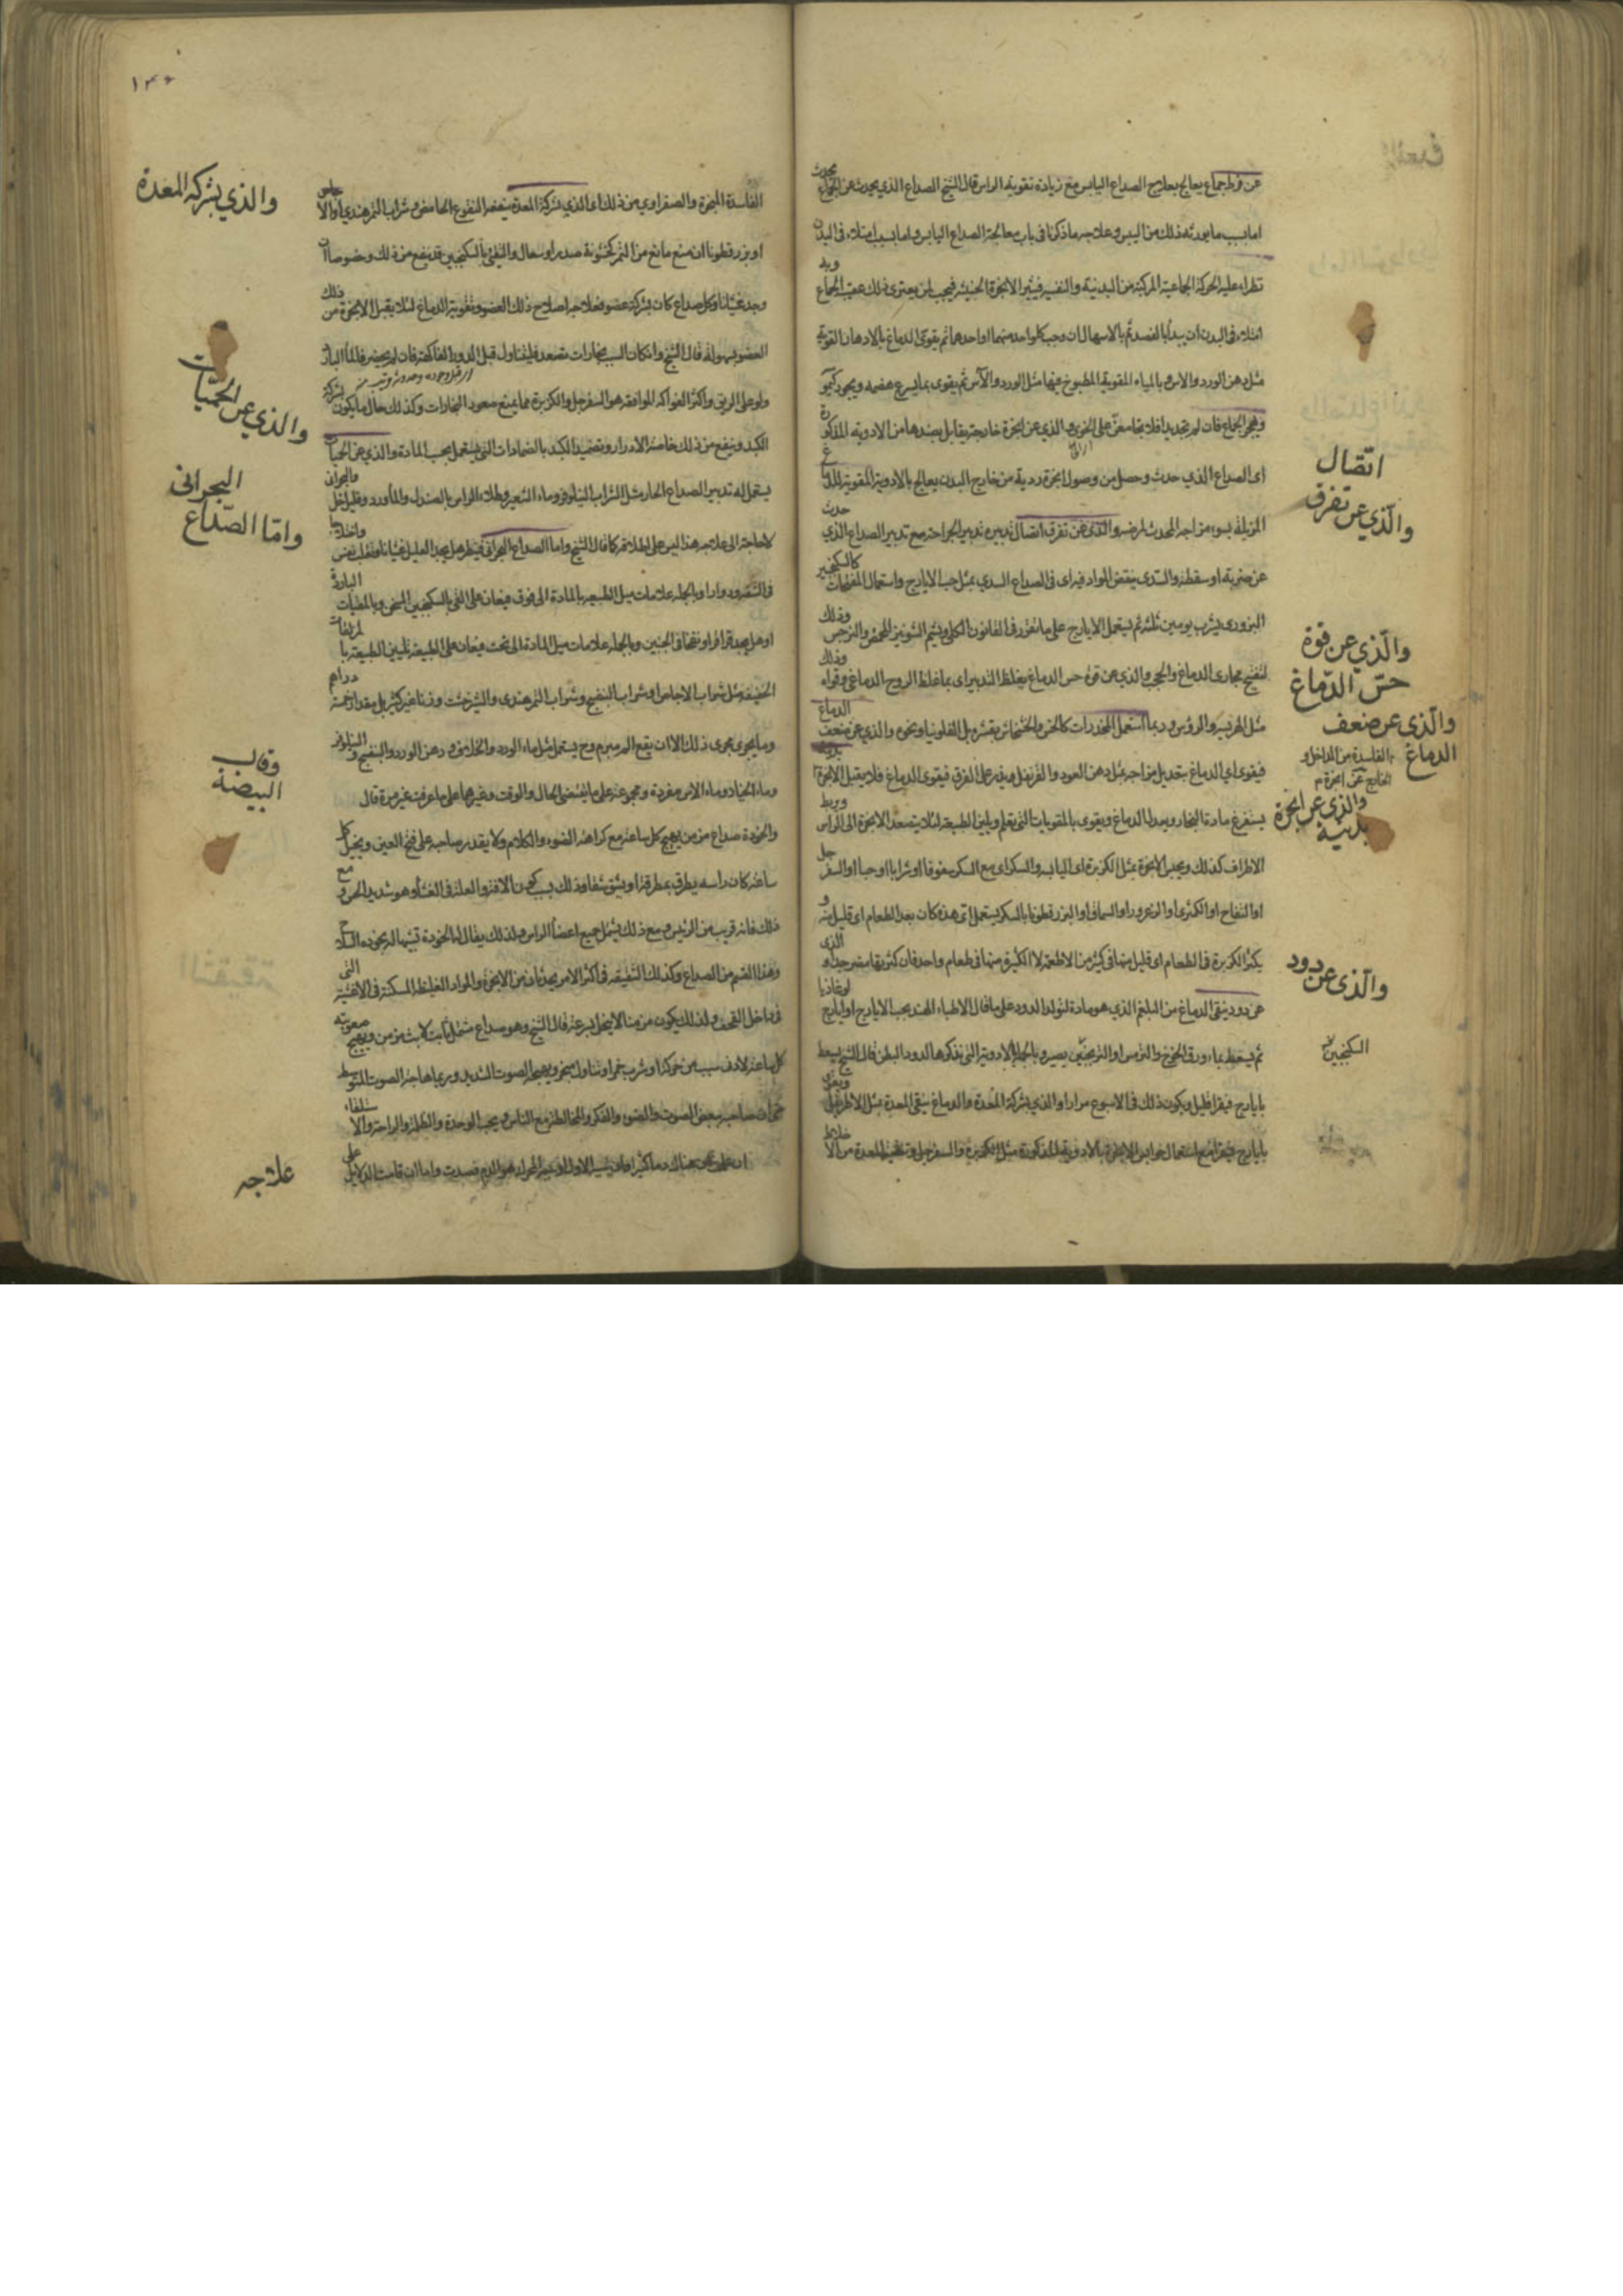 عن فرط جماع يعالج بعلاج الصداع اليابس مع زيادة تقوية الراس قال الشيخ الصداع الذي يحدث عن الجماع
اما بسبب ما يورثه ذلك من اليبس وعلاجه ما ذكرنا في باب معالجة الصداع اليابس واما بسبب امتلاء في البدن
تطراء عليه الحركة الجماعية المركبة من البدنية والنفسية فيثير الابخرة الخبيثة فيجب لمن يعترى ذلك عقيب الجماع
امتلاء في البدن ان يبدأ بالفصد ثم بالاسهال ان وجب كلواحد منهما او احدهما ثم يقوى الدماغ بالادهان القوية
مثل دهن الورد والاس وبالمياه المقوية المطبوخ فيها مثل الورد والآس ثم يقوى بما يسرع هضمه ويجود
ويهجر الجماع فان لم يجد بدا فلا يجامعن على الخوى والذي عن ابخرة خارجة يقابل بضدها من الادوية المذكورة
اى الصداع الذي حدث وحصل من وصول ابخرة ردية من خارج البدن يعالج بالادوية المقوية للدماغ
المزيلة بسوء مزاجه المحدث لمرضه والذي عن تفرق اتصال تدبيره تدبير الجراحة مع تدبير الصداع الذي حدث
عن ضربة او سقطة والسدى بنقض المواد فيه اى في الصداع السدي بمثل حب الايارج واستعمال المفتحات كالسكنجبين
البزورى يشرب يومين ثلثة ثم يستعمل الايارج على ما تقرر في القانون الكلى ويشم الشونيز المحمص والنرجس وذلك
لتفتيح مجارى الدماغ والحجب والذي عن قوة حس الدماغ يغلظ التدبير اى بما يغلظ الروح الدماغي وقواه وذلك
مثل الهريسة والرؤس وربما استعمل المخدرات كالخس والخشخاش بقشره بل الفلونيا ونحوه والذي عن ضعف الدماغ
فيقوى اي الدماغ بتعديل مزاجه بمثل دهن العود والقرنفل يقوى الدماغ فلا يقبل الابخرة
يستفرغ مادة البخار ويبدل الدماغ ويقوى بالمقويات التي تعلم ويلين الطبيعة لئلا يتصعد الابخرة الى الراس وربط
الاطراف كذلك ويحبس الابخرة بمثل الكزبرة اى اليابسه والسكر اى مع السكر سفوفا او شرابا او حبا او السفرجل
او التفاح او الكمثرى او الزعرور او السماق او البزرقطونا بالسكر يستعمل اى هذه كان بعد الطعام اى قليل منه و
يكثر الكزبرة في الطعام اى قليل منها في كثير من الاطعمة لا الكثيرة منها في طعام واحد فان كثرتها مضر جدا والذي
عن دود ينقى الدماغ من البلغم الذي هو مادة لتولد الدود على ما قال الاطباء الهند بحب الايارج او ايارج لوغاذيا
ثم يسعط بماء ورق الخوخ والترمس وبالجملة بالادوية التي نذكرها لدود البطن قال الشيخ يسعط
بايارج فيقرا قليل ويكون ذلك في الاسبوع مرارا والذي بشركة المعدة والدماغ ينقى المعدة بمثل الاطريفل ويقوى
بايارج فيقرا مع استعمال حوابس الابخرة بالادوية المذكورة مثل الكزبرة والسفرجل وتنقية المعدة من الاخلاط
اتّصال
والّذي عن تفرق
والّذي عن قوة
حسّ الدّماغ
والّذي عن ضعف
الدماغ
والذي عن ابخرة
بدنية
والّذي عن دود
السكنجبين
١٣٥
الفاسدة المبخرة والصفراوي من ذلك اى الذي بشركة المعدة ينفعه النقوع الحامض وشراب التمرهندي او الاجاص
او بزرقطونا ان منع مانع من التمر كخشونة صدر او سعال والقئ بالسكنجبين قد ينفع من ذلك وخصوصا ان
وجد غثيانا وكل صداع كان بشركة عضو فعلاجه اصلاح ذلك العضو وتقوية الدماغ لئلا يقبل الابخرة من ذلك
العضو بسهولة قال الشيخ وان كان السبب بخارات تصعد فليتناول قبل الدور الفاكهة فان لم يحضر فالماء البارد
ولو على الريق واكثر الفواكه الموافقة هو السفرجل والكزبرة مما يمنع صعود البخارات وكذلك حال ما يكون بشركة
الكبد وينفع من ذلك خاصة الادرار وتضميد الكبد بالضمادات التي يستعمل بحسب المادة والذي عن الحميات
يستعمل له تدبير الصداع الحار مثل الشراب النيلوفر وماء الشعير وطلاء الراس بالصندل والماورد وقليل خل والبحرانى
لا حاجة الى علاجه هذا ليس على اطلاقه كما قال الشيخ واما الصداع البحراني فينظر هل يجد العليل غثيانا وتقلب نفس واختلاجا
في الشفة ودوارا وبالجملة علامات ميل الطبيعة بالمادة الى فوق فيعان على القي بالسكنجبين المسخن وبالمقيات الباردة
او هل يجد قراقر او نفخا في الجنبين وبالجملة علامات ميل المادة الى تحت فيعان على الطبيعة بتليين الطبيعة بالمزلقات
الخفيفة مثل شراب الاجاص او شراب البنفسج وشراب التمرهندى والشيرخشت وزنا غير كثير بل مقدار خمسة دراهم
وما يجرى مجرى ذلك الا ان يقع المه مبرم وح يستعمل مثل ماء الورد والخلاف ودهن الورد والبنفسج والنيلوفر
وماء الخيار وماء الاس مفردة ومجموعة على ما يقتضي الحال والوقت وغيرهما على ما عرفت غير مرة قال
والخوذة صداع مزمن يهيج كل ساعة مع كراهة الضوء والكلام ولا يقدر صاحبه على فتح العين ويخيل كل
ساعة كان راسه يطرق بمطرقة او يشق شقا وذلك بسبب كون الافة والعلة في الغشاء وهو شديد الحس ومع
ذلك فانه قريب من الرئيس ومع ذلك يشمل جميع اعضاء الراس ولذلك يقال لها الخوذة تشبيها له بخوذة السلاح
وهذا القسم من الصداع وكذلك الشقيقه في اكثر الامر يحدثان من الابخرة والمواد الغليظة المسكنة في الاغشية التى
في داخل القحف ولذلك يكون مزمنا لا ينحل بسرعة قال الشيخ وهو صداع مشتمل ثابت لابث مزمن ويهيج صعوبته
كل ساعة لادنى سبب من حركة او شرب خمر او تناول مبخر ويهيجه الصوت الشديد وربما هاجه الصوت المتوسط
حتى ان صاحبه يبغض الصوت والضوء والفكر والمخالطة مع الناس ويحب الوحدة والظلمة والراحة والاستلقاء
والذي بشركه المعدة
والذي عن الحميّات
البحرانى
وامّا الصّداع
وقالب
البيضة
علاجه